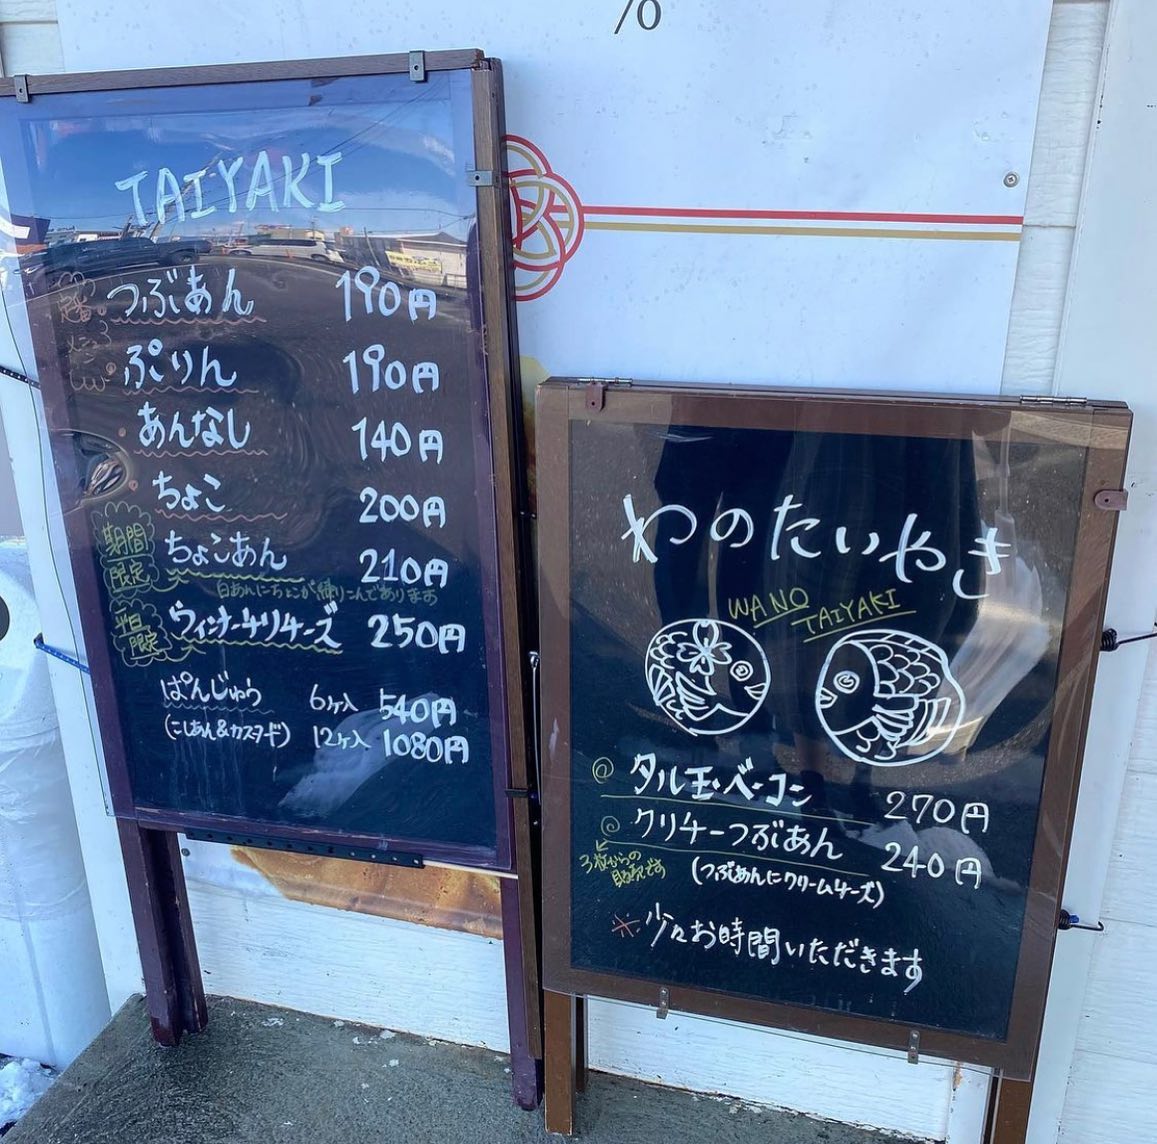 %
TAIYAKI
定番メニュー
つぶあん 190円
ぷりん 190円
あんなし 140円
ちょこ 200円
期間限定
ちょこあん 210円
白あんにちょこが練りこんであります
平日限定
ウィンナーチリチーズ 250円
ぱんじゅう 6ヶ入 540円
(こしあん&カスタード) 12ヶ入 1080円
わのたいやき
WA NO
TAIYAKI
タル玉ベーコン 270円
クリチーつぶあん 240円
(つぶあんにクリームチーズ)
3枚からの
販売です
※少々お時間いただきます